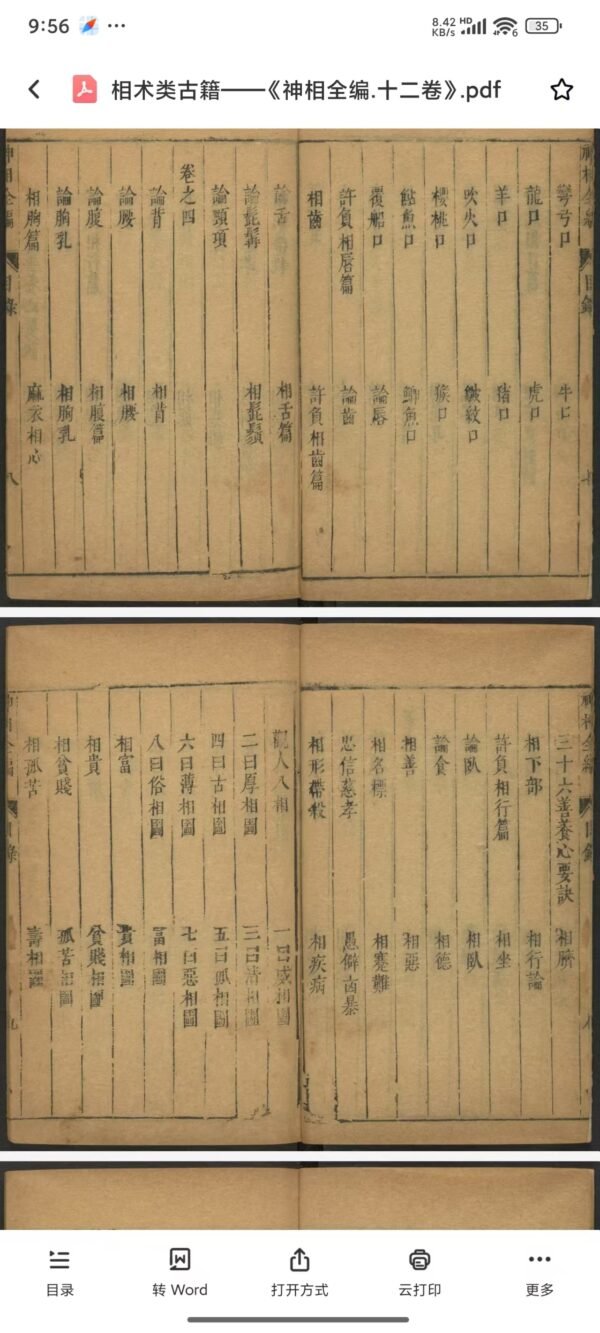 9:56
8.42 KB/s
HD
6
35
相术类古籍——《神相全编.十二卷》.pdf
神相全編
目錄
彎弓口
牛口
龍口
虎口
羊口
猪口
吹火口
皺紋口
櫻桃口
猴口
鮎魚口
鯽魚口
覆船口
論唇
許負相唇篇
論齒
相齒
許負相齒篇
論舌
相舌篇
論髭髯
相髭鬚
論頸項
卷之四
論背
相背
論腰
相腰
論腹
相腹篇
論胸乳
相胸乳
相胸篇
麻衣相心
神相全編
目錄
八
神相全編
目錄
三十六善養心要訣
相臍
相下部
相行論
許負相行篇
相坐
論臥
相臥
論食
相德
相善
相惡
相名標
相蹇難
忠信慈孝
愚僻凶暴
相形帶殺
相疾病
觀人八相
一曰威相圖
二曰厚相圖
三曰清相圖
四曰古相圖
五曰孤相圖
六曰薄相圖
七曰惡相圖
八曰俗相圖
相富
富相圖
相貴
貴相圖
相貧賤
貧賤相圖
相孤苦
孤苦相圖
壽相圖
神相全編
目錄
九
目录
转 Word
打开方式
云打印
更多